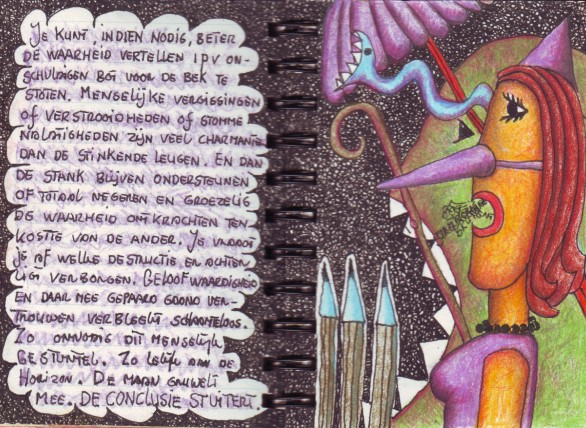 JE KUNT, INDIEN NODIG, BETER
DE WAARHEID VERTELLEN IPV ON-
SCHULDIGEN BOT VOOR DE BEK TE
STOTEN. MENSELIJKE VERGISSINGEN
OF VERSTROOIDHEDEN OF STOMME
ZIJN VEEL CHARMANTE
DAN DE STINKENDE LEUGEN. EN DAN
DE STANK BLIJVEN ONDERSTEUNEN
OF TOTAAL NEGEREN EN GROEZELIG
DE WAARHEID ONTKRACHTEN TEN
KOSTTE VAN DE ANDER. JE
JE AF WELKE DESTRUCTIE ER ACHTER
LIGT VERBORGEN. GELOOFWAARDIGHEID
EN DAAR MEE GEPAARD GOOND VER-
TROUWEN VERBLEEKT SCHAAMTELOOS.
ZO ONNODIG DIT MENSELIJK
GESTUNTEL. ZO LELIJK AAN DE
HORIZON. DE MAAN GRUWELT
MEE. DE CONCLUSIE STUITERT.